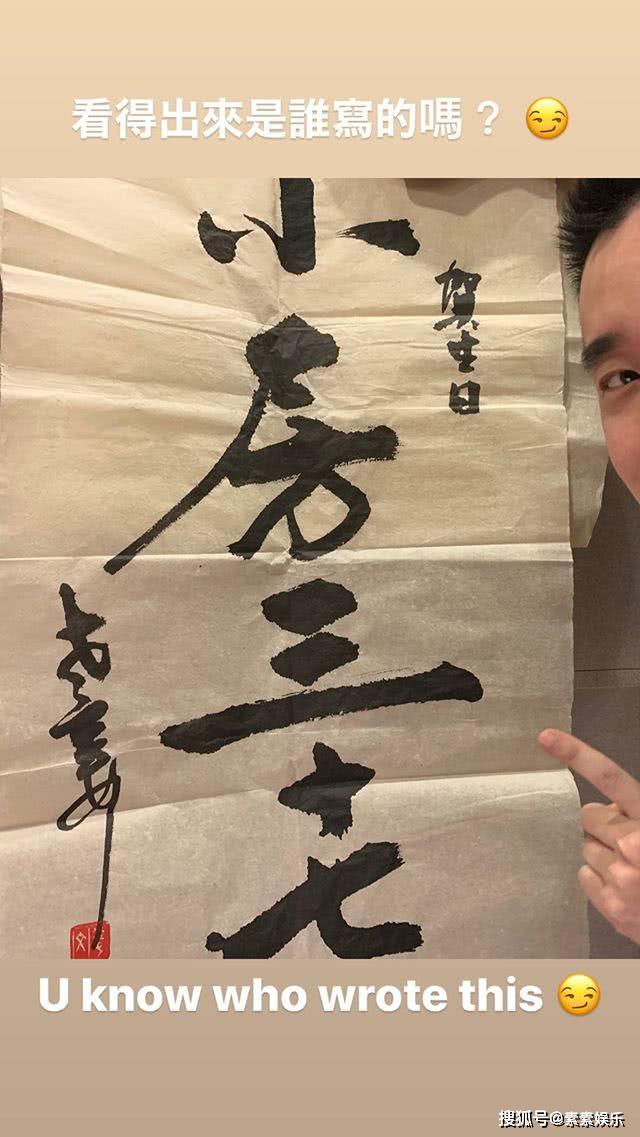 看得出來是誰寫的嗎？😏
賀生日
小房三十七
老姜
U know who wrote this 😏
搜狐号@素素娱乐